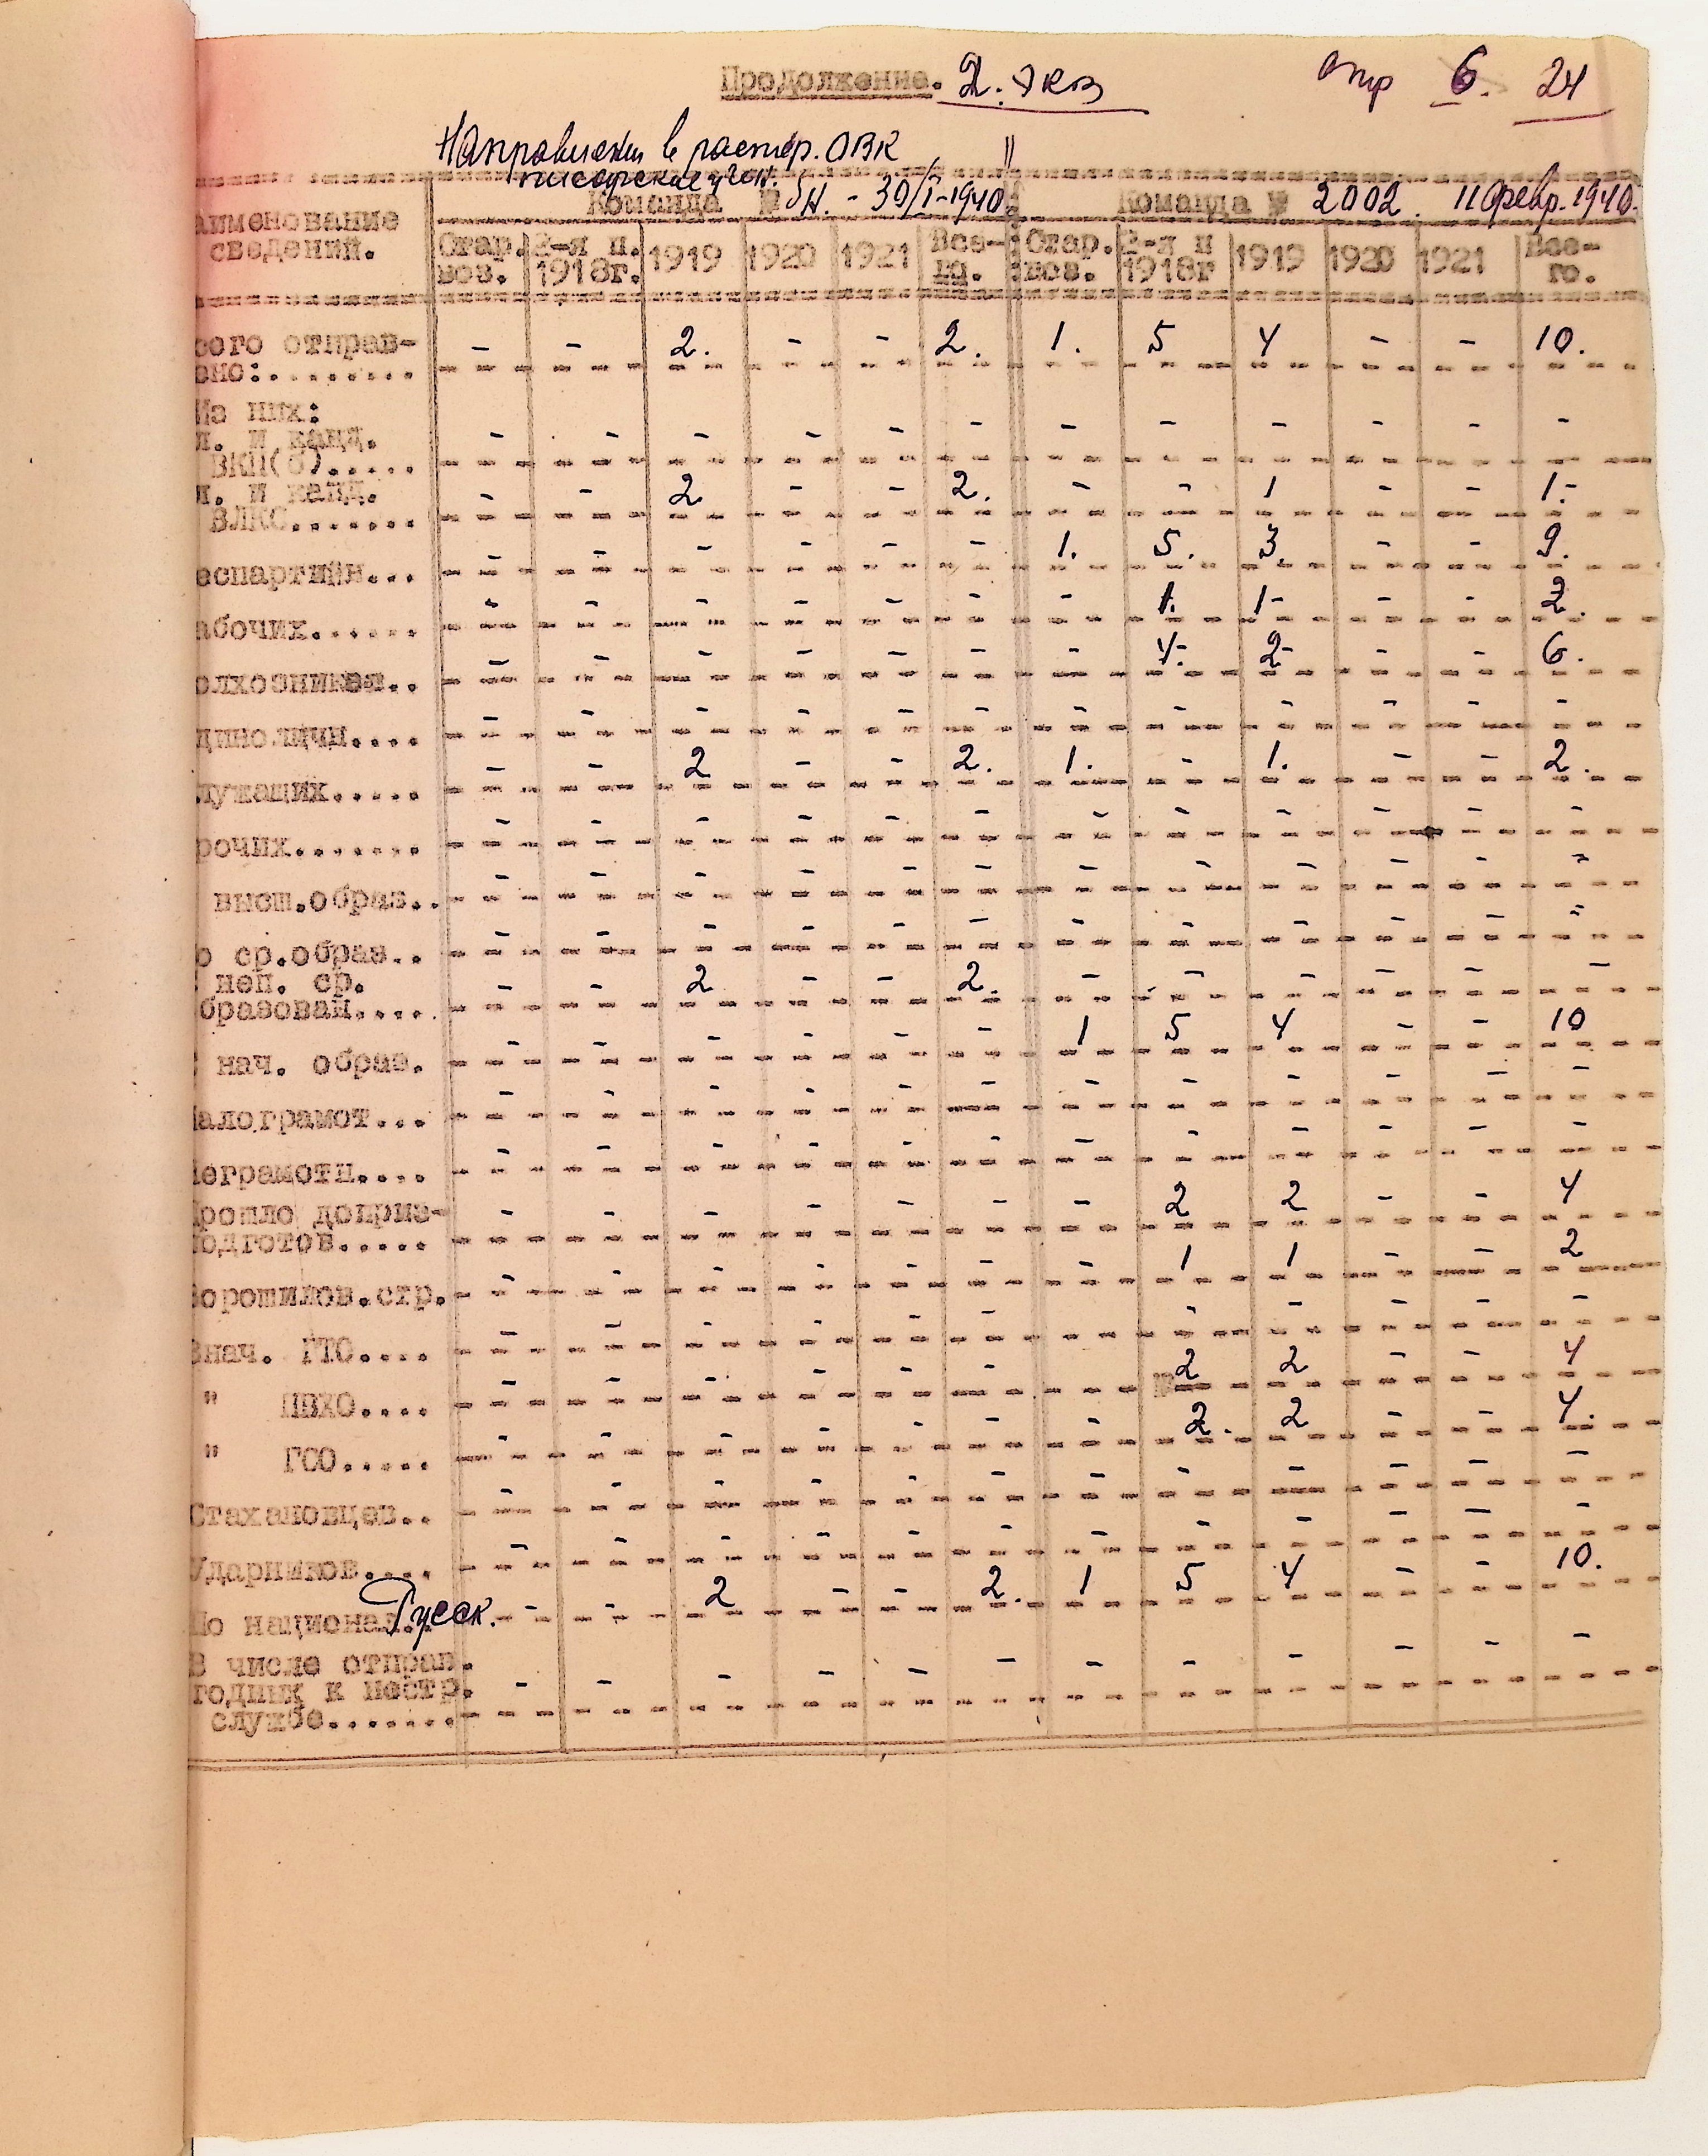 Продолжение. 2. экз стр 6. 24
Направлены в распор. ОВК
писарские
Команда № - 30/I-1940. Команда № 2002. 11 февр. 1940.
аименование
сведений.
Стар. воз. 2-я п. 1918г. 1919 1920 1921 Все-го. Стар. воз. 2-я п 1918г 1919 1920 1921 Все-го.
сего отправ- - - 2. - - 2. 1. 5 4 - - 10.
ено:.........
Из них:
л. и канд. - - - - - - - - - - - -
ВКП(б).....
л. и канд. - - 2 - - 2. - - 1 - - 1.-
ВЛКС.......
еспартийн... - - - - - - 1. 5. 3. - - 9.
абочих...... - - - - - - - 1. 1- - - 2.
олхозников.. - - - - - - - 4- 2- - - 6.
диноличн.... - - - - - - - - - - - -
лужащих..... - - 2 - - 2. 1. - 1. - - 2.
рочих....... - - - - - - - - - - - -
высш.образ.. - - - - - - - - - - - -
о ср.образ.. - - - - - - - - - - - -
неп. ср.
бразован.... - - 2 - - 2. - - - - - -
нач. образ. - - - - - - 1 5 4 - - 10
алограмот... - - - - - - - - - - - -
еграмотн.... - - - - - - - - - - - -
рошло доприз- - - - - - - - 2 2 - - 4
одготов.....
орошилов.стр. - - - - - - - 1 1 - - 2
Знач. ГТО.... - - - - - - - - - - -
" ПВХО.... - - - - - - 2 2 - - 4
" ГСО..... - - - - - - - 2. 2 - - 4.
Стахановцев.. - - - - - - - - - - - -
Ударников.... - - - - - - - - - - - -
По национал. Русск. - - 2 - - 2. 1 5 4 - - 10.
В числе отправ.
годных к нестр. - - - - - - - - - - - -
службе........